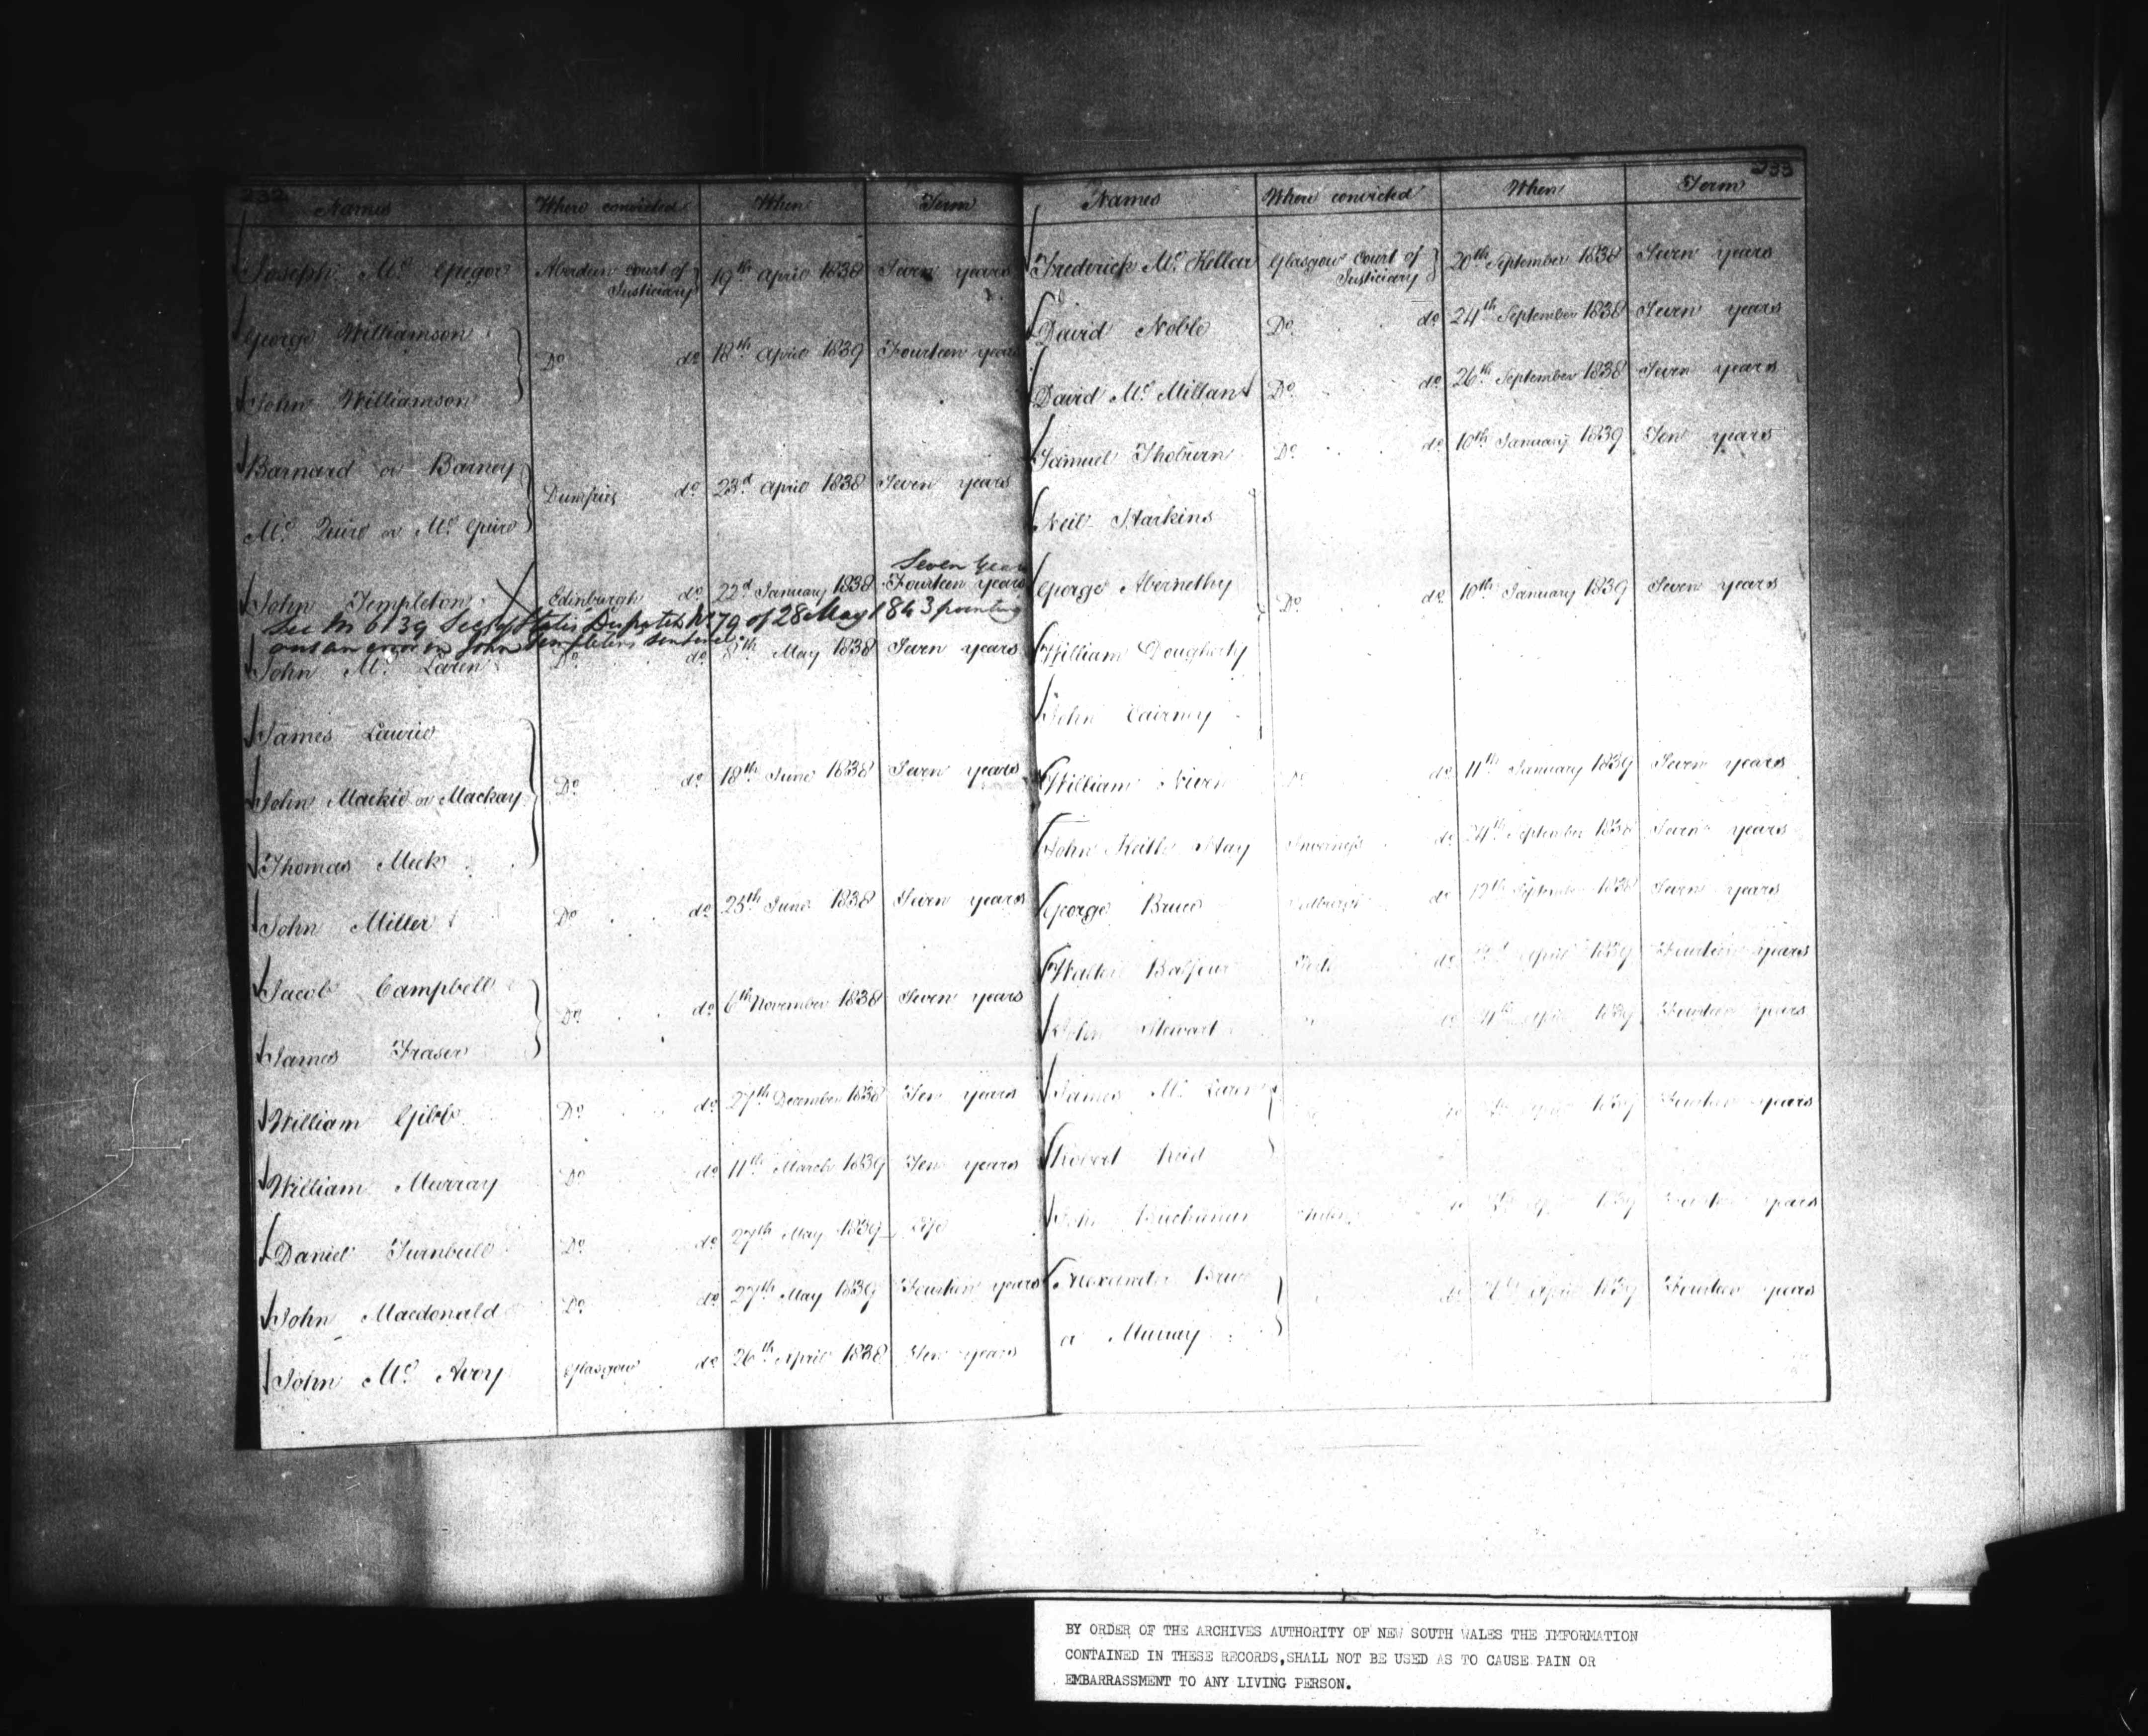 232
Names Where convicted When Term
Joseph Mc. Gregor Aberdeen Court of Justiciary 19th April 1838 Seven years
George Williamson
John Williamson Do. do. 18th April 1839 Fourteen years
Barnard or Barney
Mc. Quire or Mc. Guire Dumfries do. 23d April 1838 Seven years
Seven Years
John Templeton Edinburgh do. 22d January 1838 Fourteen years
See 6139 Secy of State's Dispatch No. 79 of 28 May 1843 pointing
out an error in John Templeton's sentence.
John Mc. Laren Do. do. 8th May 1838 Seven years
James Laurie
John Mackie or Mackay Do. do. 18th June 1838 Seven years
Thomas Meek
John Miller Do. do. 25th June 1838 Seven years
Jacob Campbell
James Fraser Do. do. 6th November 1838 Seven years
William Gibb Do. do. 27th December 1838 Ten years
William Murray Do. do. 11th March 1839 Ten years
Daniel Turnbull Do. do. 27th May 1839 Life
John Macdonald Do. do. 27th May 1839 Fourteen years
John Mc. Avoy Glasgow do. 26th April 1838 Ten years
233
Names Where convicted When Term
Frederick Mc. Kellar Glasgow Court of Justiciary 20th September 1838 Seven years
David Noble Do. do. 24th September 1838 Seven years
David Mc. Millan Do. do. 26th September 1838 Seven years
Samuel Thoburn Do. do. 10th January 1839 Ten years
Neil Harkins
George Abernethy Do. do. 10th January 1839 Seven years
William Dougherty
John Cairney
William Niven Do. do. 11th January 1839 Seven years
John Keith Hay Inverness do. 24th September 1838 Seven years
George Bruce Jedburgh do. 12th September 1838 Seven years
Walter Balfour Perth do. April 1839 Fourteen years
John Stewart do. 1839 Fourteen years
James Mc. Laren 1839 Fourteen years
Robert Reid
John Buchanan Stirling 1839 Fourteen years
Alexander Bruce do. April 1839 Fourteen years
or Murray
BY ORDER OF THE ARCHIVES AUTHORITY OF NEW SOUTH WALES THE IMFORMATION
CONTAINED IN THESE RECORDS,SHALL NOT BE USED AS TO CAUSE PAIN OR
EMBARRASSMENT TO ANY LIVING PERSON.